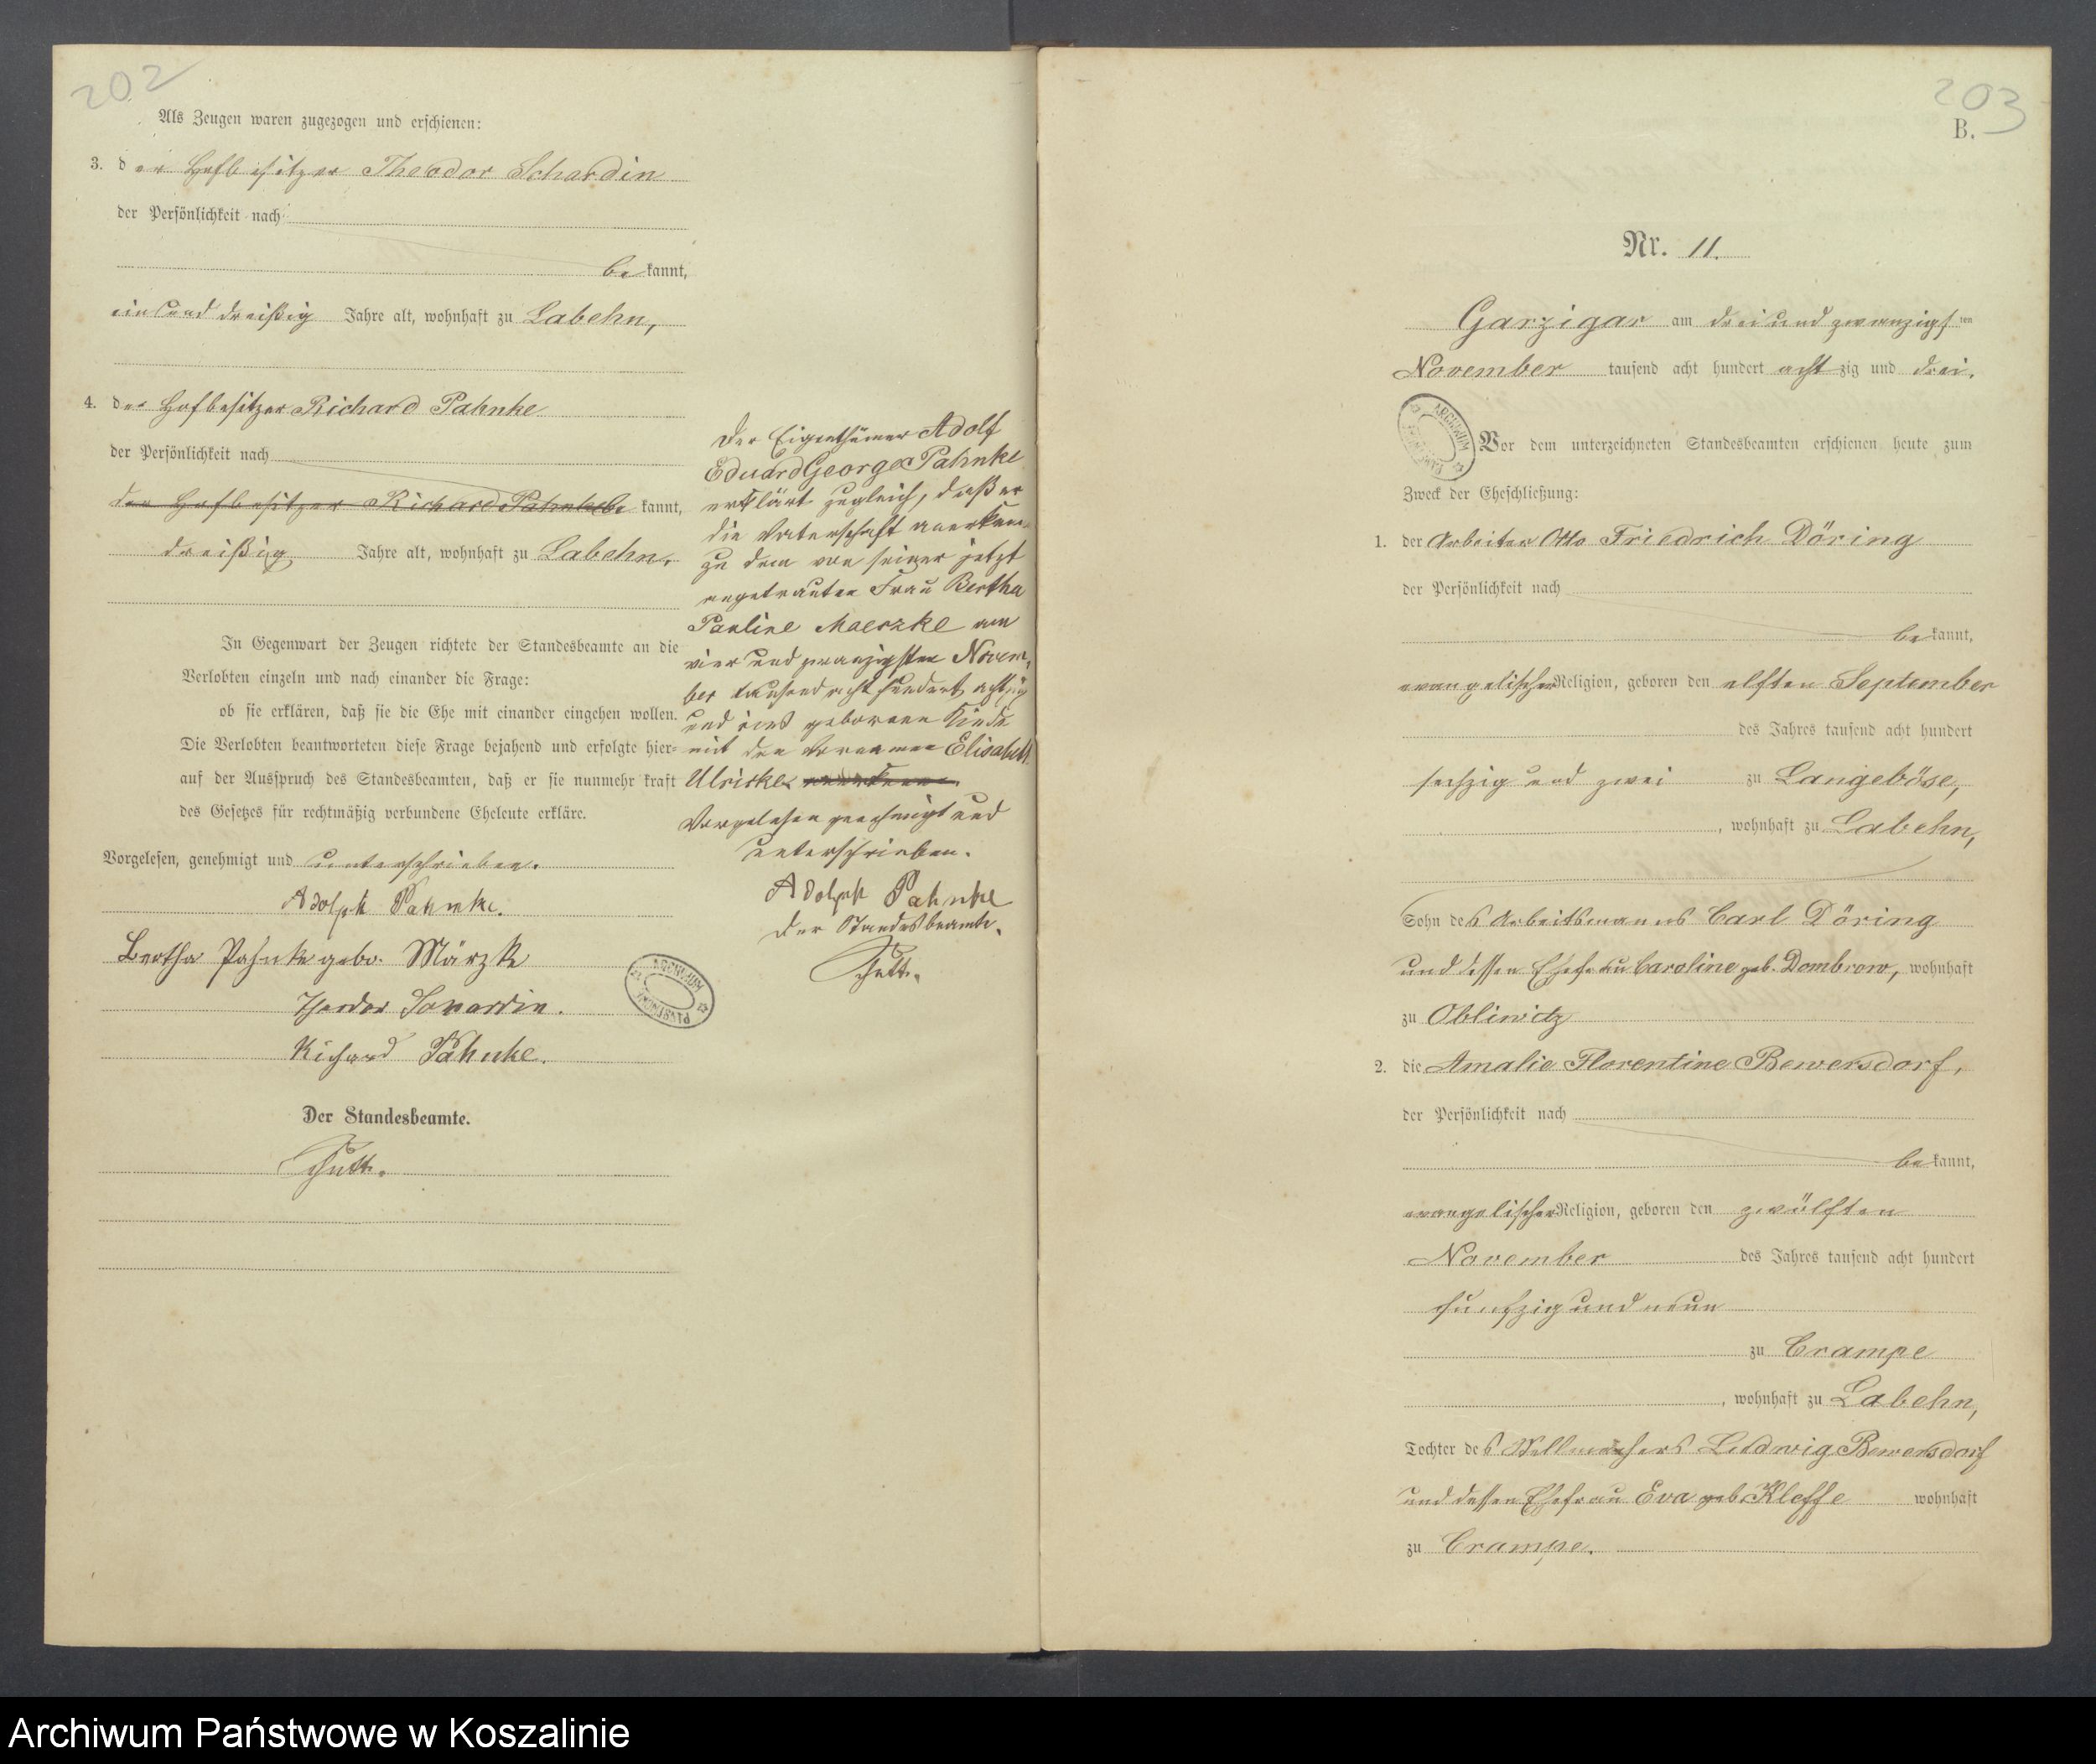 202
Als Zeugen waren zugezogen und erschienen:
3. der Hofbesitzer Theodor Schardin
der Persönlichkeit nach
be kannt,
einund dreißig Jahre alt, wohnhaft zu Labehn,
4. der Hofbesitzer Richard Pahnke
der Persönlichkeit nach
der Hofbesitzer Richard Pahnke be kannt,
dreißig Jahre alt, wohnhaft zu Labehn.
In Gegenwart der Zeugen richtete der Standesbeamte an die
Verlobten einzeln und nach einander die Frage:
ob sie erklären, daß sie die Ehe mit einander eingehen wollen.
Die Verlobten beantworteten diese Frage bejahend und erfolgte hier-
auf der Ausspruch des Standesbeamten, daß er sie nunmehr kraft
des Gesetzes für rechtmäßig verbundene Eheleute erkläre.
Vorgelesen, genehmigt und unterschrieben.
Adolph Pahnke.
Bertha Pahnke gebr. Märzke
Theodor Schardin.
Richard Pahnke.
Der Standesbeamte.
Der Eigenthümer Adolf
Eduard George Pahnke
erklärt zugleich, daß er
die Vaterschaft anerkenne
zu dem von seiner jetzt
angetrauten Frau Bertha
Pauline Maerzke am
vier und zwanzigsten Novem-
ber tausend acht hundert achtzig
und eins geborenen Kinde
mit den Vornamen Elisabeth
Ulricke
Vorgelesen genehmigt und
unterschrieben.
Adolph Pahnke
Der Standesbeamte.
ARCHIWUM PAŃSTWOWE
203
B.
Nr. 11.
Garzigar am dreiundzwanzigsten
November tausend acht hundert achtzig und drei.
ARCHIWUM
Vor dem unterzeichneten Standesbeamten erschienen heute zum
Zweck der Eheschließung:
1. der Arbeiter Otto Friedrich Döring
der Persönlichkeit nach
be kannt,
evangelischer Religion, geboren den elften September
des Jahres tausend acht hundert
sechzig und zwei zu Langeböse,
, wohnhaft zu Labehn,
Sohn des Arbeitsmanns Carl Döring
und dessen Ehefrau Caroline geb. Dombrow, wohnhaft
zu Oblinitz
2. die Amalie Florentine Bewersdorf,
der Persönlichkeit nach
be kannt,
evangelischer Religion, geboren den zwölften
November des Jahres tausend acht hundert
fünfzig und neun
zu Crampe
, wohnhaft zu Labehn,
Tochter des Ludwig Bewersdorf
und dessen Ehefrau Eva geb. Kleffe wohnhaft
zu Crampe.
Archiwum Państwowe w Koszalinie